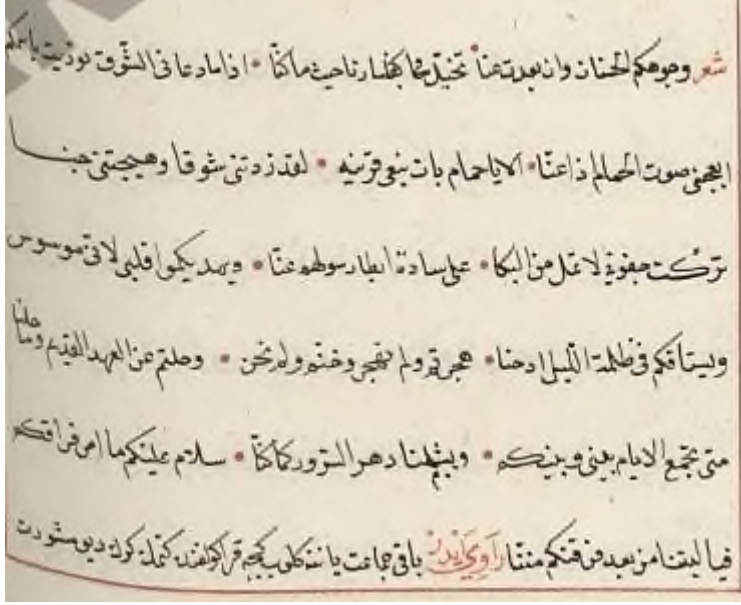 شعر وجوهكم الحسنان وان بعدت عنا تخيل ما بحفسار ناحيث ما كنا اذا ما دعا فى الشوق نوديت باسمكم
ايعجبنى صوت الحمام اذا غنا الا يا حمام بات ينعى قرينه لقد زدتنى شوقا وهيجتنى حبنا
تركت جفونى لا تمل من البكا على سادة عنا ويهديكموا قلبى لا موسوس
ويستاقكم فى ظلمة الليل اذ حنا هجرتم ولم نهجر وخنتم ولم نخن وحلتم عن العهد القديم وما حلنا
متى تجمع الايام بينى وبينكم دهر السرور كما كنا سلام عليكم ما امر فراقكم
فيا ليتنا من بعد فرقتكم متنا راوى ايدر باقى جماعت ياننه كلوب كيجه كتمك كرك ديو مشورت